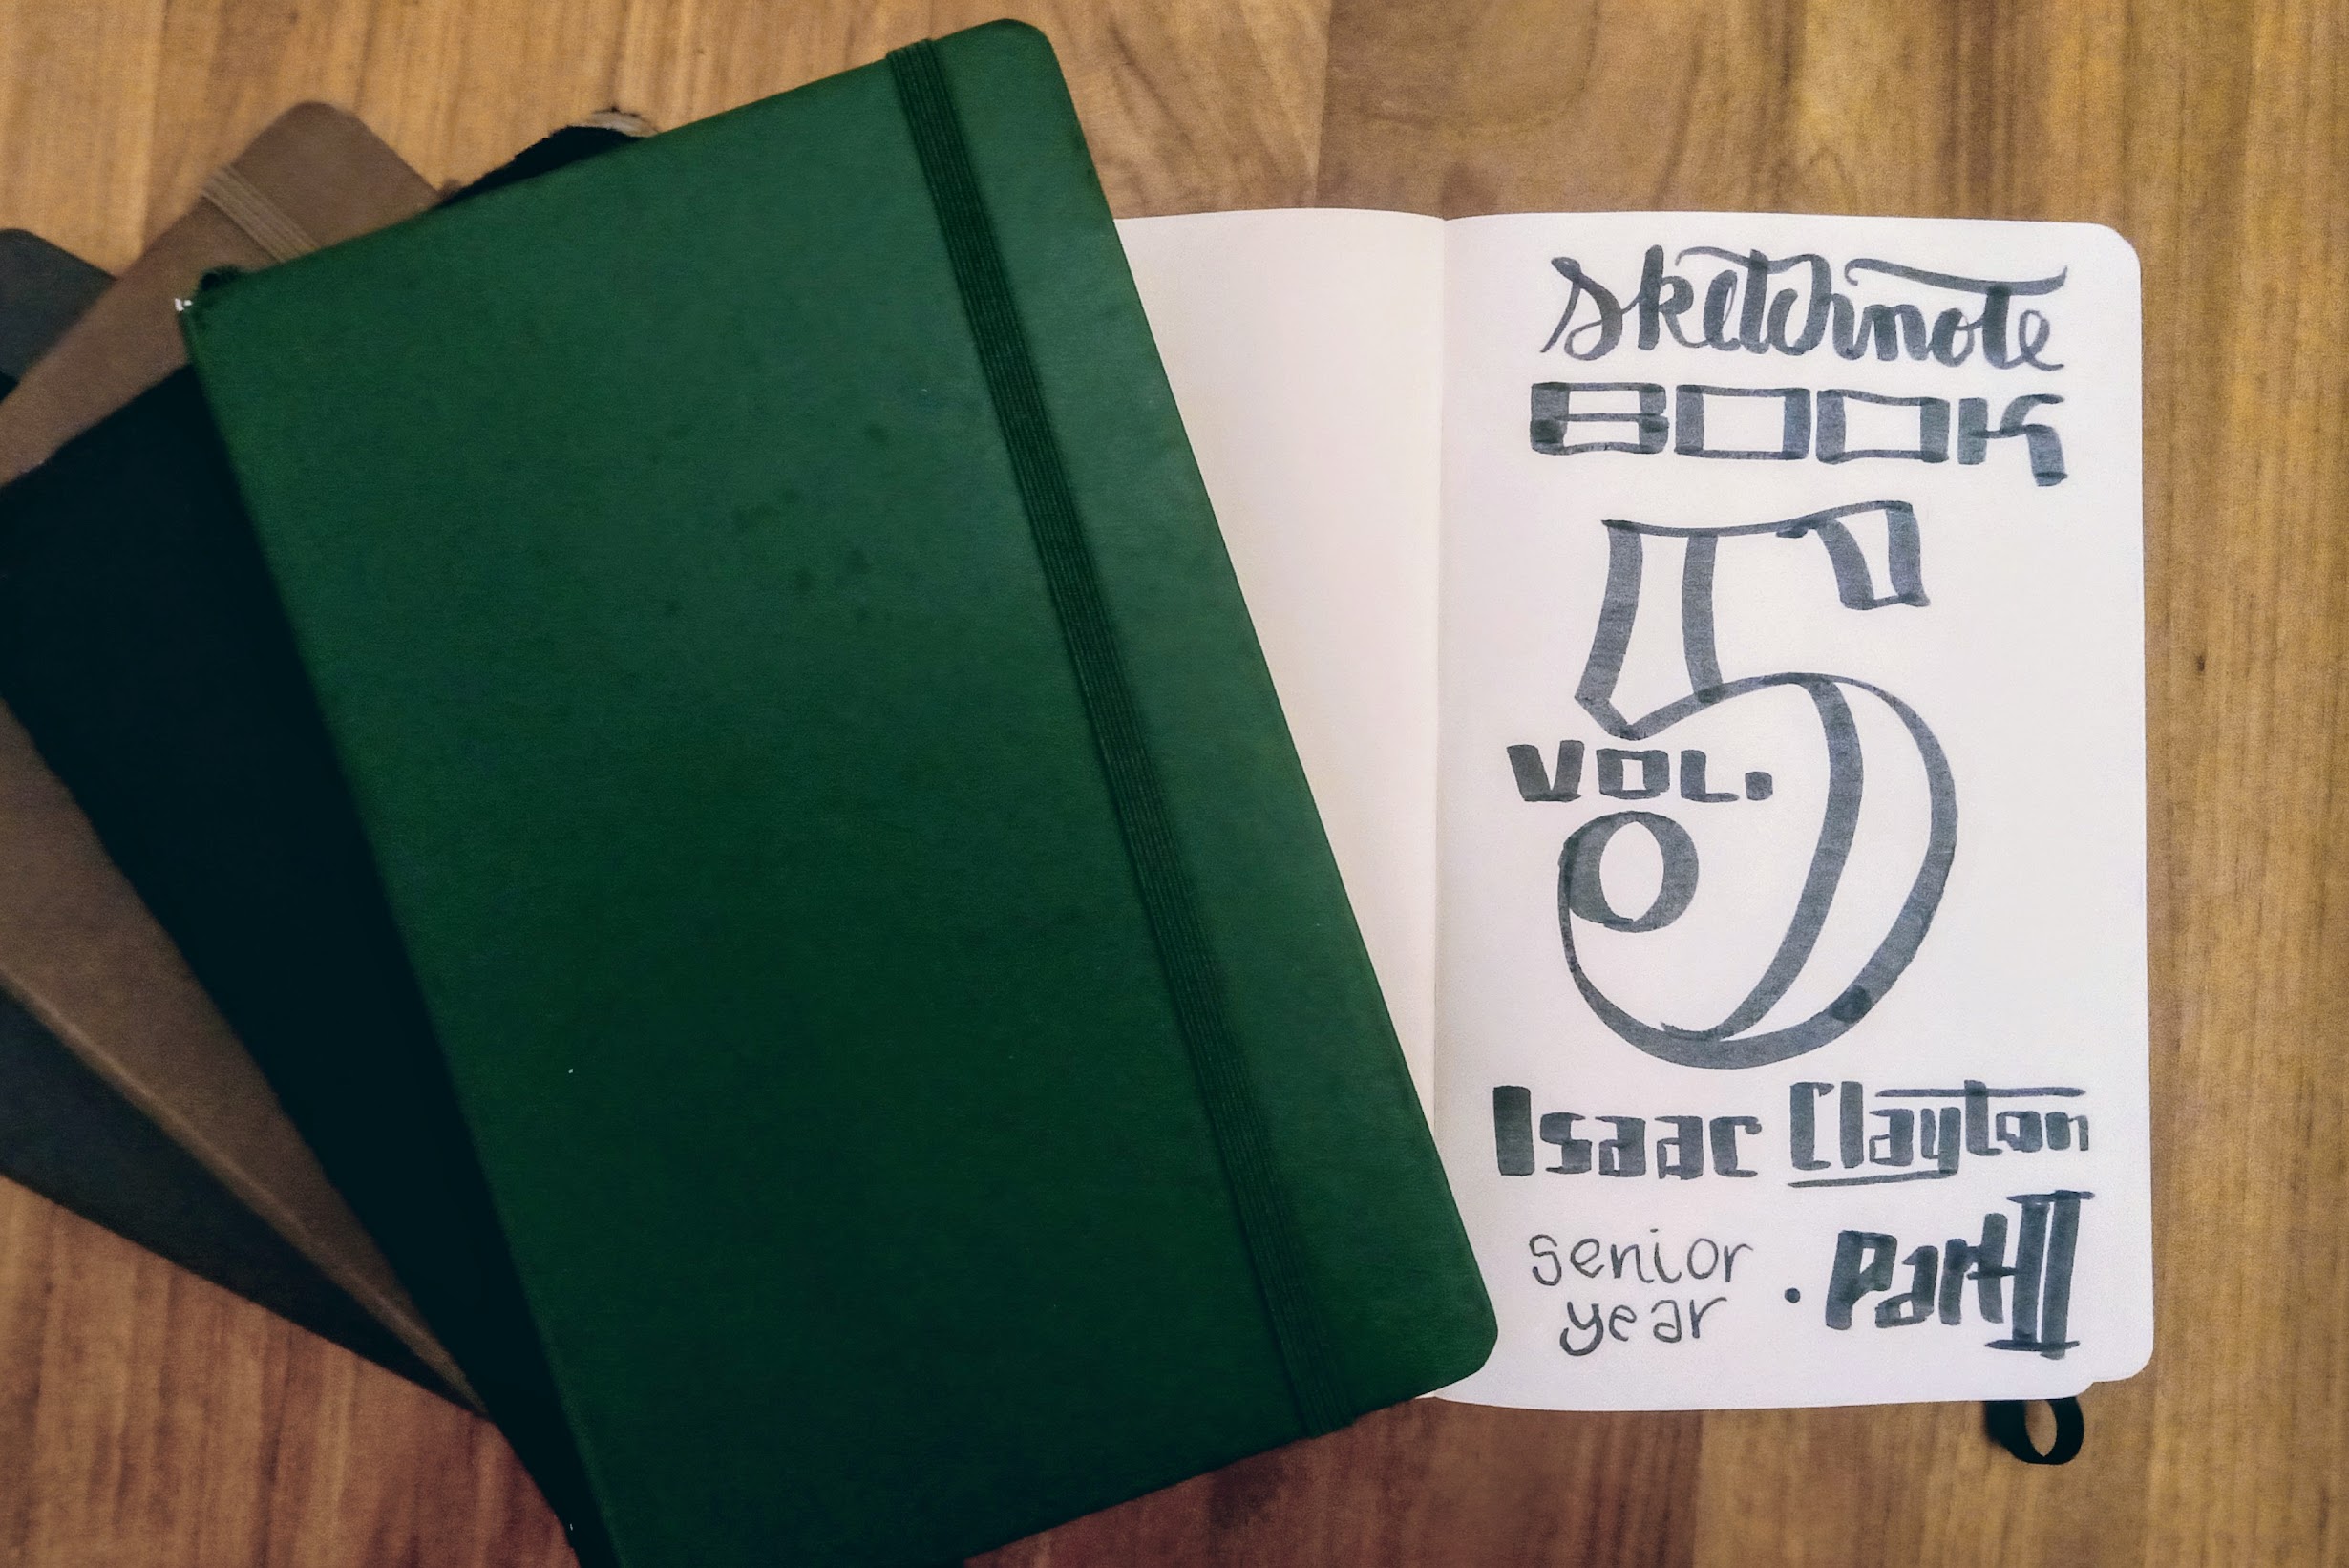 Sketchnote
BOOK
VOL.
5
Isaac Clayton
senior
year
• Part II